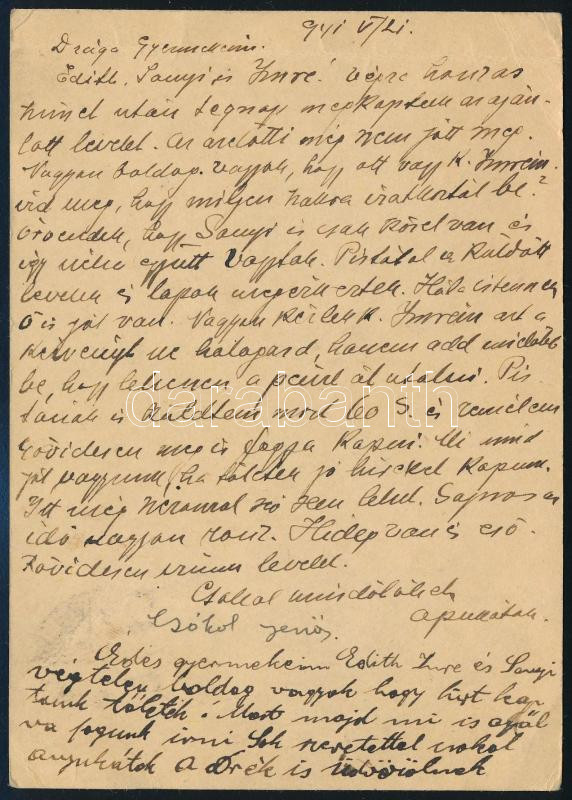 941 V/21.
Drága Gyermekeim.
Edith. Sanyi és Imre! végre hosszas
szünet után tegnap megkaptam az aján-
lott levelet. Az azelőtti még nem jött meg.
Nagyon boldog vagyok, hogy ott vagy K. Imrém.
ird meg, hogy milyen
örvendek, hogy Sanyi is csak közel van és
így néha együtt vagytok. Pistától a küldött
levelek és lapok megérkeztek. Hála istennek
ő is jól van. Nagyon kérlek K. Imrém azt a
kérvényt ne halaszd, hanem add mielőbb
be, hogy lehessen a pénzt át utalni. Pis-
tának is küldtem most 60 S. és remélem
rövidesen meg is fogja kapni. Mi mind
jól vagyunk, ha tőletek jó hireket kapunk.
Itt még nyaralásról szó sem lehet. Sajnos az
idő nagyon rossz. Hideg van és eső.
Rövidesen irunk levelet.
Csókol mindőtöket
apukátok.
Csókol Jenő.
Édes gyermekeim Edith Imre és Sanyi
végtelen boldog vagyok hogy hirt kap
tunk tőletek! Most majd mi is ajál
va fogunk irni Sok szeretettel csókol
anyukátok a Drék is üdvözölnek
darabanth